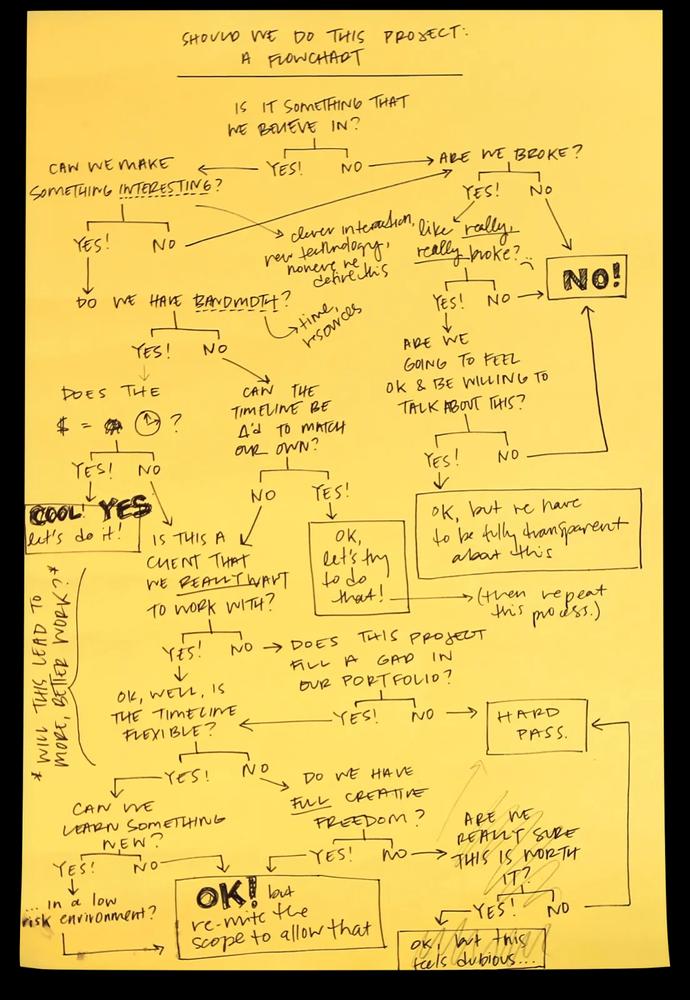 SHOULD WE DO THIS PROJECT:
A FLOWCHART
IS IT SOMETHING THAT
WE BELIEVE IN?
YES! NO
CAN WE MAKE
SOMETHING INTERESTING?
YES! NO
clever interaction,
new technology,
define this
ARE WE BROKE?
YES! NO
like really,
really broke?
YES! NO
NO!
DO WE HAVE BANDWIDTH?
time,
resources
YES! NO
ARE WE
GOING TO FEEL
OK & BE WILLING TO
TALK ABOUT THIS?
YES! NO
DOES THE
$ = ?
YES! NO
CAN THE
TIMELINE BE
Δ'd TO MATCH
OUR OWN?
NO YES!
COOL! YES
let's do it!
OK,
let's try
to do
that!
(then repeat
this process.)
OK, but we have
to be fully transparent
about this
IS THIS A
CLIENT THAT
WE REALLY WANT
TO WORK WITH?
YES! NO
* WILL THIS LEAD TO
MORE, BETTER WORK? *
DOES THIS PROJECT
FILL A GAP IN
OUR PORTFOLIO?
YES! NO
HARD
PASS.
OK, WELL, IS
THE TIMELINE
FLEXIBLE?
YES! NO
CAN WE
LEARN SOMETHING
NEW?
YES! NO
... in a low
risk environment?
DO WE HAVE
FULL CREATIVE
FREEDOM?
YES! NO
OK! but
re-write the
scope to allow that
ARE WE
REALLY SURE
THIS IS WORTH
IT?
YES! NO
OK! but this
feels dubious...